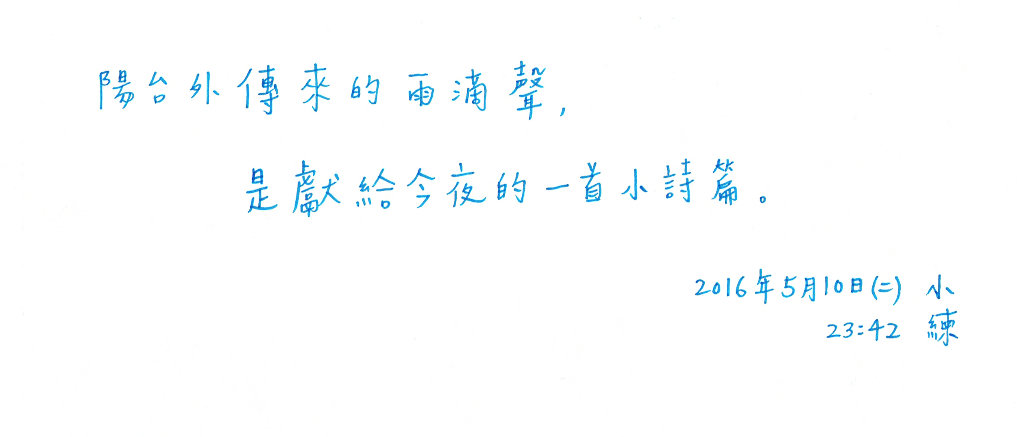 陽台外傳來的雨滴聲,
是獻給今夜的一首小詩篇。
2016年5月10日(二) 小
23:42 練